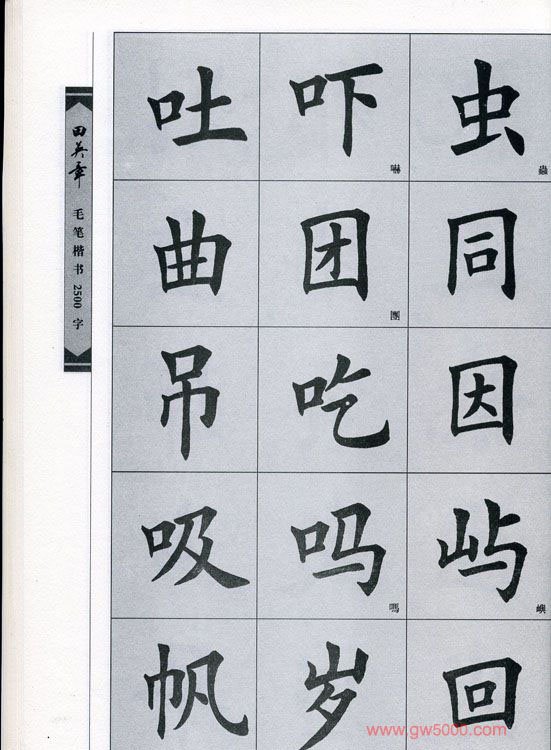 田英章
毛笔楷书2500字
吐吓虫
嚇蟲
曲团同
團
吊吃因
吸吗屿
嗎嶼
帆岁回
www.gw5000.com